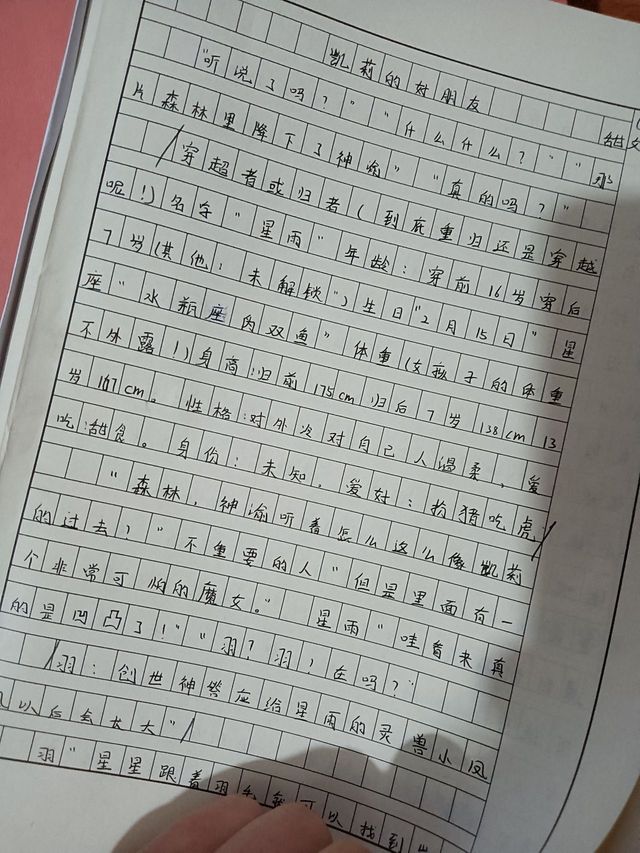 凯莉的好朋友
甜文
"听说了吗?""什么什么?""那
片森林里降下了神谕""真的吗?"
/穿超者或归者(到底重归还是穿越
呢!)名字"星雨"年龄:穿前16岁穿后
7岁(其他:未解锁")生日"2月15日"星
座"水瓶座内双鱼"体重(女孩子的体重
不外露!)身高:归前175cm归后7岁138cm13
岁167cm。性格:对外冷对自己人温柔,爱
吃:甜食。身份:未知,爱好:扮猪吃虎/
"森林,神谕听着怎么这么像凯莉
的过去?""不重要的人"但是里面有一
个非常可怕的魔女。"星雨"哇看来真
的是凹凸了!""羽?羽,在吗?"
/羽:创世神答应给星雨的灵兽小凤
以后会长大"/
羽"星星跟着羽 可以找到